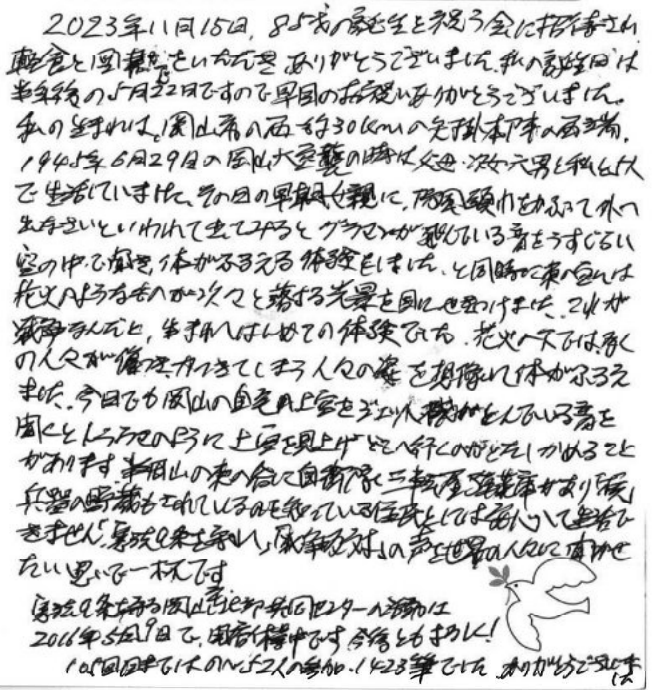 2023年11月15日、85才の誕生を祝う会に招待され
軽食と図書券をいただき ありがとうございました。私の誕生日は
半年後の5月22日ですので早目のお祝いありがとうございました。
私の生まれは、岡山市の西方約30kmの矢掛
1945年6月29日の岡山大空襲の時は父母・次女・六男と私と5人
で生活していました。その日の早朝父親に、防空頭巾をかぶって外へ
出なさいといわれて出てみるとグラマンが飛んでいる音をうすぐらい
空の中で聞き、体がふるえる体験をしました。と同時に東の空には
花火のようなものが次々と落ちる光景を目にやきつけました。これが
戦争なんだと、生まれてはじめての体験でした。花火の下では多く
の人々が傷つきやけてしまう人々の姿を想像して体がふるえ
ました。今日でも岡山の自宅の上空をジェット機がとんでいる音を
聞くと のように上空を見上げどこへ行くのかとたしかめること
があります。半田山の東の 自衛隊三軒屋弾薬庫があり
兵器の貯蔵もされているのを知っている住民としては安心して生活で
きません。「憲法9条を守れ」、「戦争反対」の声を世界の人々に聞かせ
たい思いで一杯です
憲法9条を守る岡山 共同センターの活動は
2016年5月9日で、 今後ともよろしく!
105回目まで 2人の参加・1423筆でした。ありがとうございました